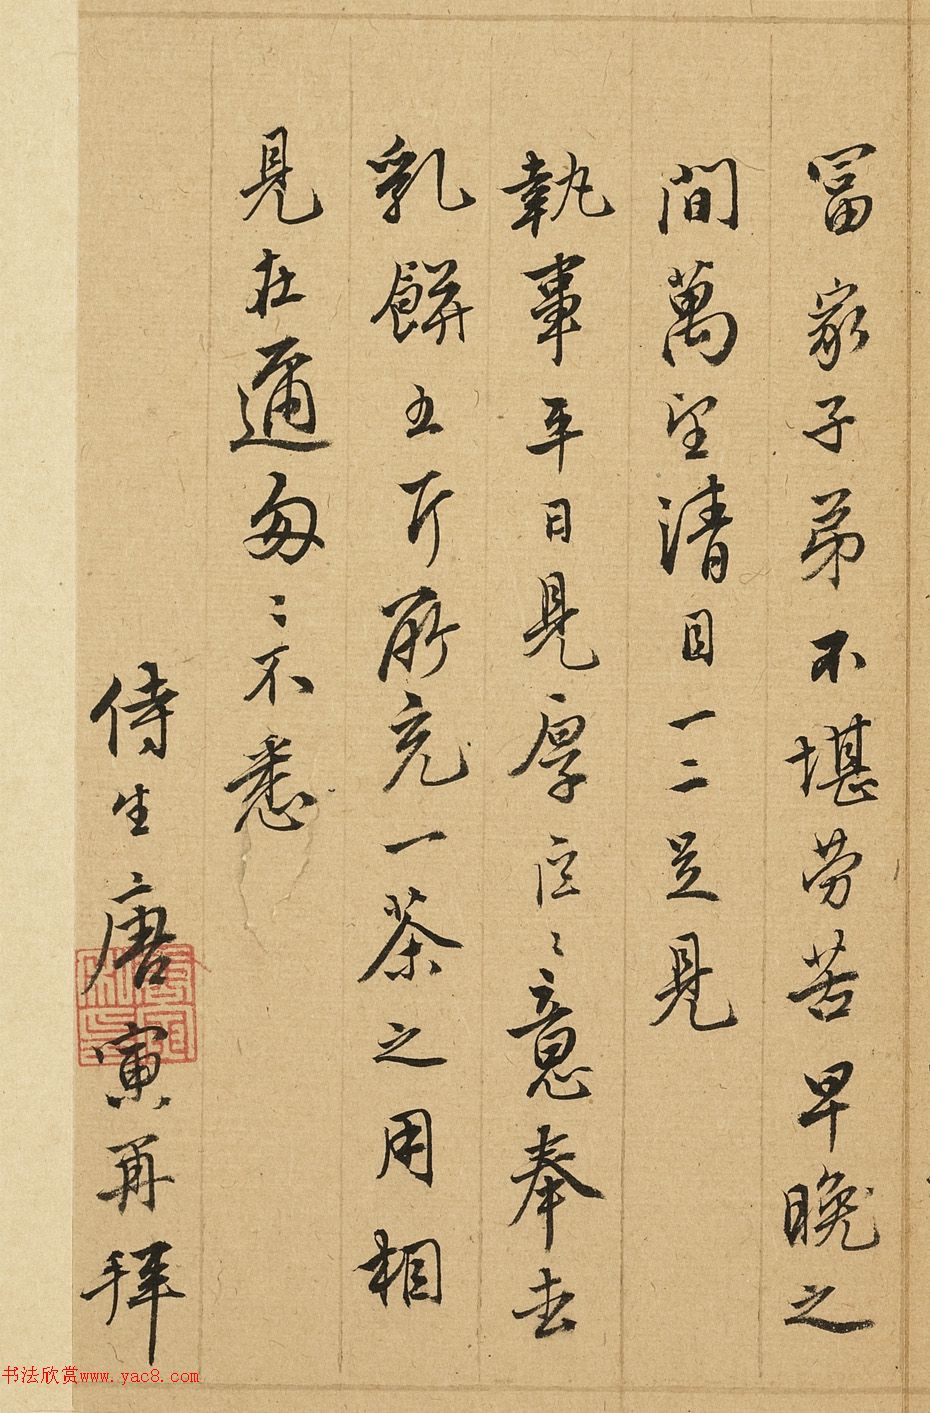 冨家子弟不堪劳苦早晚之
間萬望清目一二足見
執事平日見厚区〻意奉去
乳餅五斤所充一茶之用相
見在邇匆〻不悉
侍生唐寅再拜
书法欣赏www.yac8.com